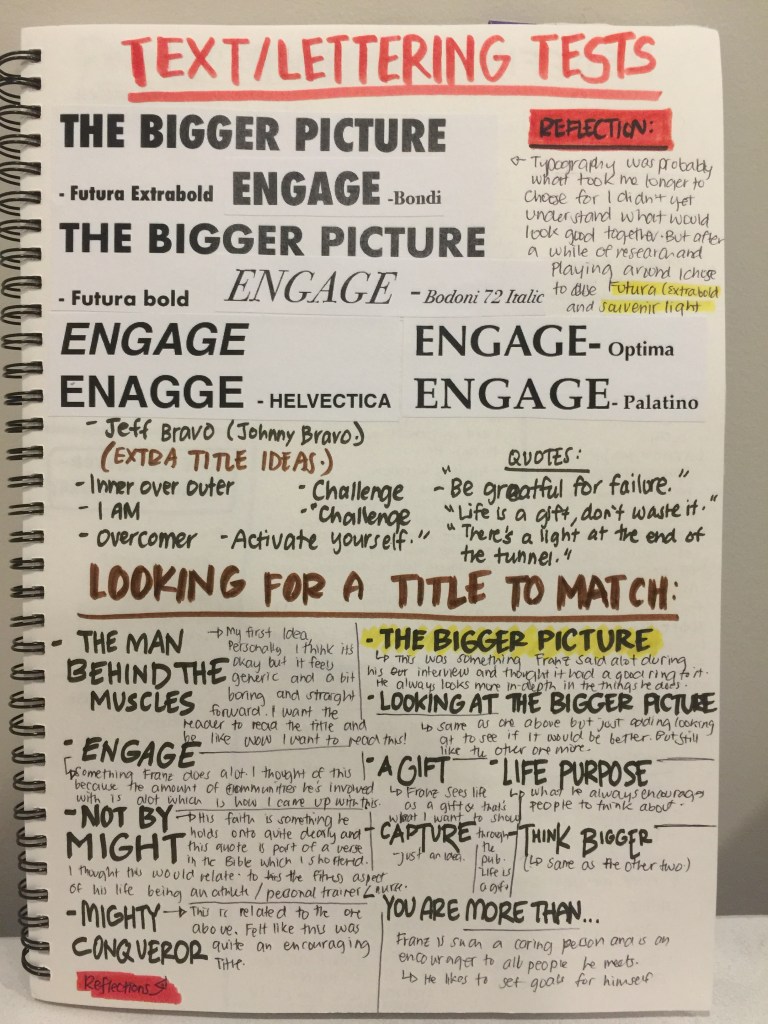 TEXT/LETTERING TESTS
THE BIGGER PICTURE
- Futura Extrabold ENGAGE -Bondi
THE BIGGER PICTURE
- Futura bold ENGAGE - Bodoni 72 Italic
ENGAGE
ENAGGE - HELVECTICA
ENGAGE- Optima
ENGAGE- Palatino
REFLECTION:
Typography was probably
what took me longer to
choose for I didn't yet
understand what would
look good together. But after
a while of research and
playing around I chose
to use Futura (Extrabold
and souvenir light
- Jeff Bravo (Johnny Bravo.)
(EXTRA TITLE IDEAS.)
- Inner over outer
- I AM
- Overcomer - Activate yourself."
- Challenge
- "Challenge
QUOTES:
- "Be greatful for failure."
"Life is a gift, don't waste it."
"There's a light at the end of
the tunnel."
LOOKING FOR A TITLE TO MATCH:
- THE MAN
BEHIND THE
MUSCLES
My first idea,
Personally I think its
okay but it feels
generic and a bit
boring and straight
forward. I want the
reader to read the title and
be like wow I want to read this!
- THE BIGGER PICTURE
This was something Franz said alot during
his interview and thought it had a good ring to it.
He always looks more in-depth in the things he does.
- LOOKING AT THE BIGGER PICTURE
same as one above but just adding looking
at to see if it would be better. But still
like the other one more.
- ENGAGE
Something Franz does alot. I thought of this
because the amount of communities he's involved
with is alot which is how I came up with this.
- A GIFT
Franz sees life
as a gift & that's
what I want to show
through
the
pub.
Life is
a gift
- LIFE PURPOSE
what he always encourages
people to think about.
- NOT BY
MIGHT
His faith is something he
holds onto quite dearly and
this quote is part of a verse
in the Bible which I shortend.
I thought this would relate to the fitness aspect
of his life being an athlete / personal trainer / nurse.
- CAPTURE
- just an idea.
- THINK BIGGER
(same as the other two)
- MIGHTY
CONQUEROR
This is related to the one
above. Felt like this was
quite an encouraging
title.
YOU ARE MORE THAN...
Franz is such a caring person and is an
encourager to all people he meets.
He likes to set goals for himself
Reflections